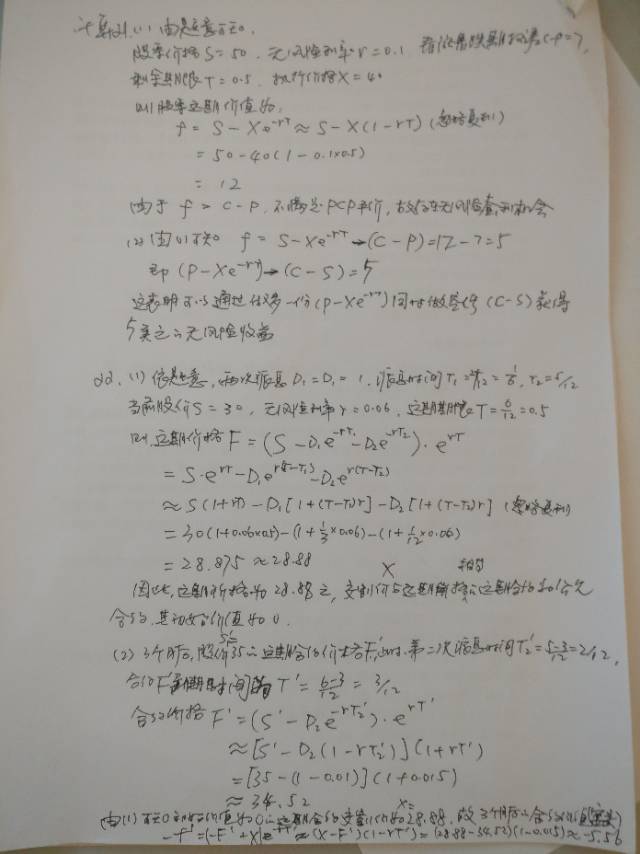 计算21.(1) 由题意可知。
股票价格S=50，无风险利率r=0.1，看涨看跌期权差C-P=7，
剩余期限T=0.5，执行价格X=40
则股票远期价值为，
f = S - Xe^{-rT} ≈ S - X(1-rT) (忽略复利)
= 50-40(1-0.1×0.5)
= 12
由于 f > C-P，不满足PCP平价，故存在无风险套利机会
(2) 由(1)可知 f = S-Xe^{-rT} → (C-P)=12-7=5
即 (P-Xe^{-rT}) → (C-S)=5
这表明可以通过做多一份(P-Xe^{-rT})同时做空(C-S)获得
5美元无风险收益
22. (1) 依题意，两次派息 D₁=D₁=1，派息时间T₁=2/12=1/6，T₂=5/12
当前股价S=30，无风险利率r=0.06，远期期限T=6/12=0.5
则远期价格 F=(S-D₁e^{-rT₁}-D₂e^{-rT₂})·e^{rT}
= S·e^{rT}-D₁e^{r(T-T₁)}-D₂e^{r(T-T₂)}
≈ S(1+rT)-D₁[1+(T-T₁)r]-D₂[1+(T-T₂)r] (忽略复利)
= 30(1+0.06×0.5)-(1+1/3×0.06)-(1+1/12×0.06)
= 28.875 ≈28.88 X 相等
因此，远期价格为28.88元，交割价与远期价格远期合约的公允
合约，其初始价值为0.
(2) 3个月后，股价S'=35 远期合约价格F'，此时，第二次派息时间T₂'=5-3/12=2/12，
合约F'到期时间 T'=6-3/12=3/12
合约价格 F'=(S'-D₂e^{-rT₂'})·e^{rT'}
≈[S'-D₂(1-rT₂')](1+rT')
=[35-(1-0.01)](1+0.015)
≈ 34.52 X=
由(1)可知初始价值为0 远期合约交割价为28.88，故3个月后合约价值(空头)
-f'=(-F'+X)e^{-rT'}≈(X-F')(1-rT')=(28.88-34.52)(1-0.015)≈-5.56